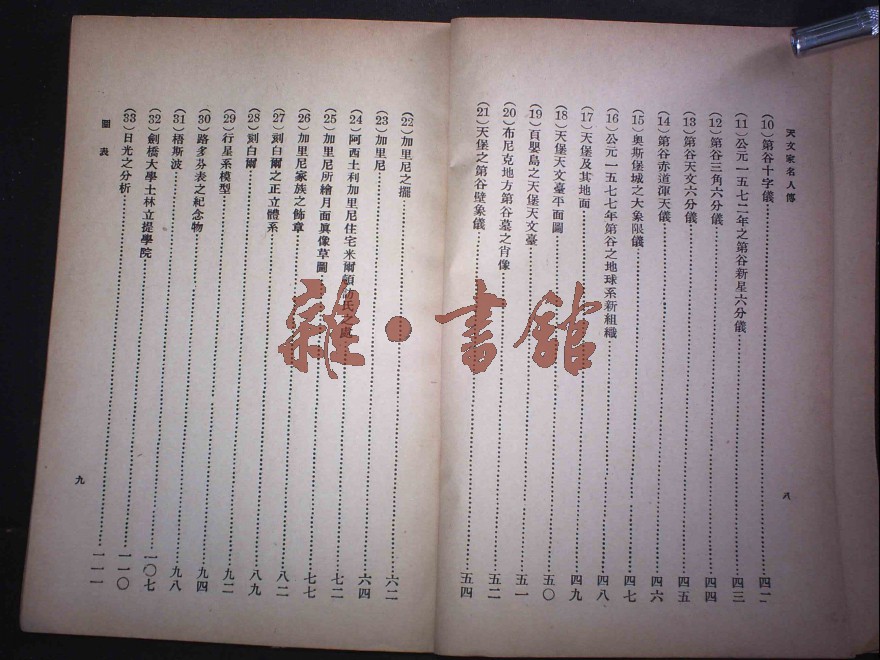 天文家名人傳
(10)第谷十字儀……四二
(11)公元一五七二年之第谷新星六分儀……四三
(12)第谷三角六分儀……四四
(13)第谷天文六分儀……四五
(14)第谷赤道渾天儀……四六
(15)奧斯堡城之大象限儀……四七
(16)公元一五七七年第谷之地球系新組織……四八
(17)天堡及其地面……四九
(18)天堡天文臺平面圖……五〇
(19)百嬰島之天堡天文臺……五一
(20)布尼克地方第谷墓之肖像……五二
(21)天堡之第谷壁象儀……五四
八
(22)加里尼之擺……六二
(23)加里尼……六四
(24)阿西土利加里尼住宅米爾頓訪氏之處……七二
(25)加里尼所繪月面眞像草圖……七七
(26)加里尼家族之飾章……八二
(27)刻白爾之正立體系……八九
(28)刻白爾……九二
(29)行星系模型……九四
(30)路多芬表之紀念物……九八
(31)梧斯波……一〇七
(32)劍橋大學土林立提學院……一一〇
(33)日光之分析……一一一
圖表
九
雜·書館